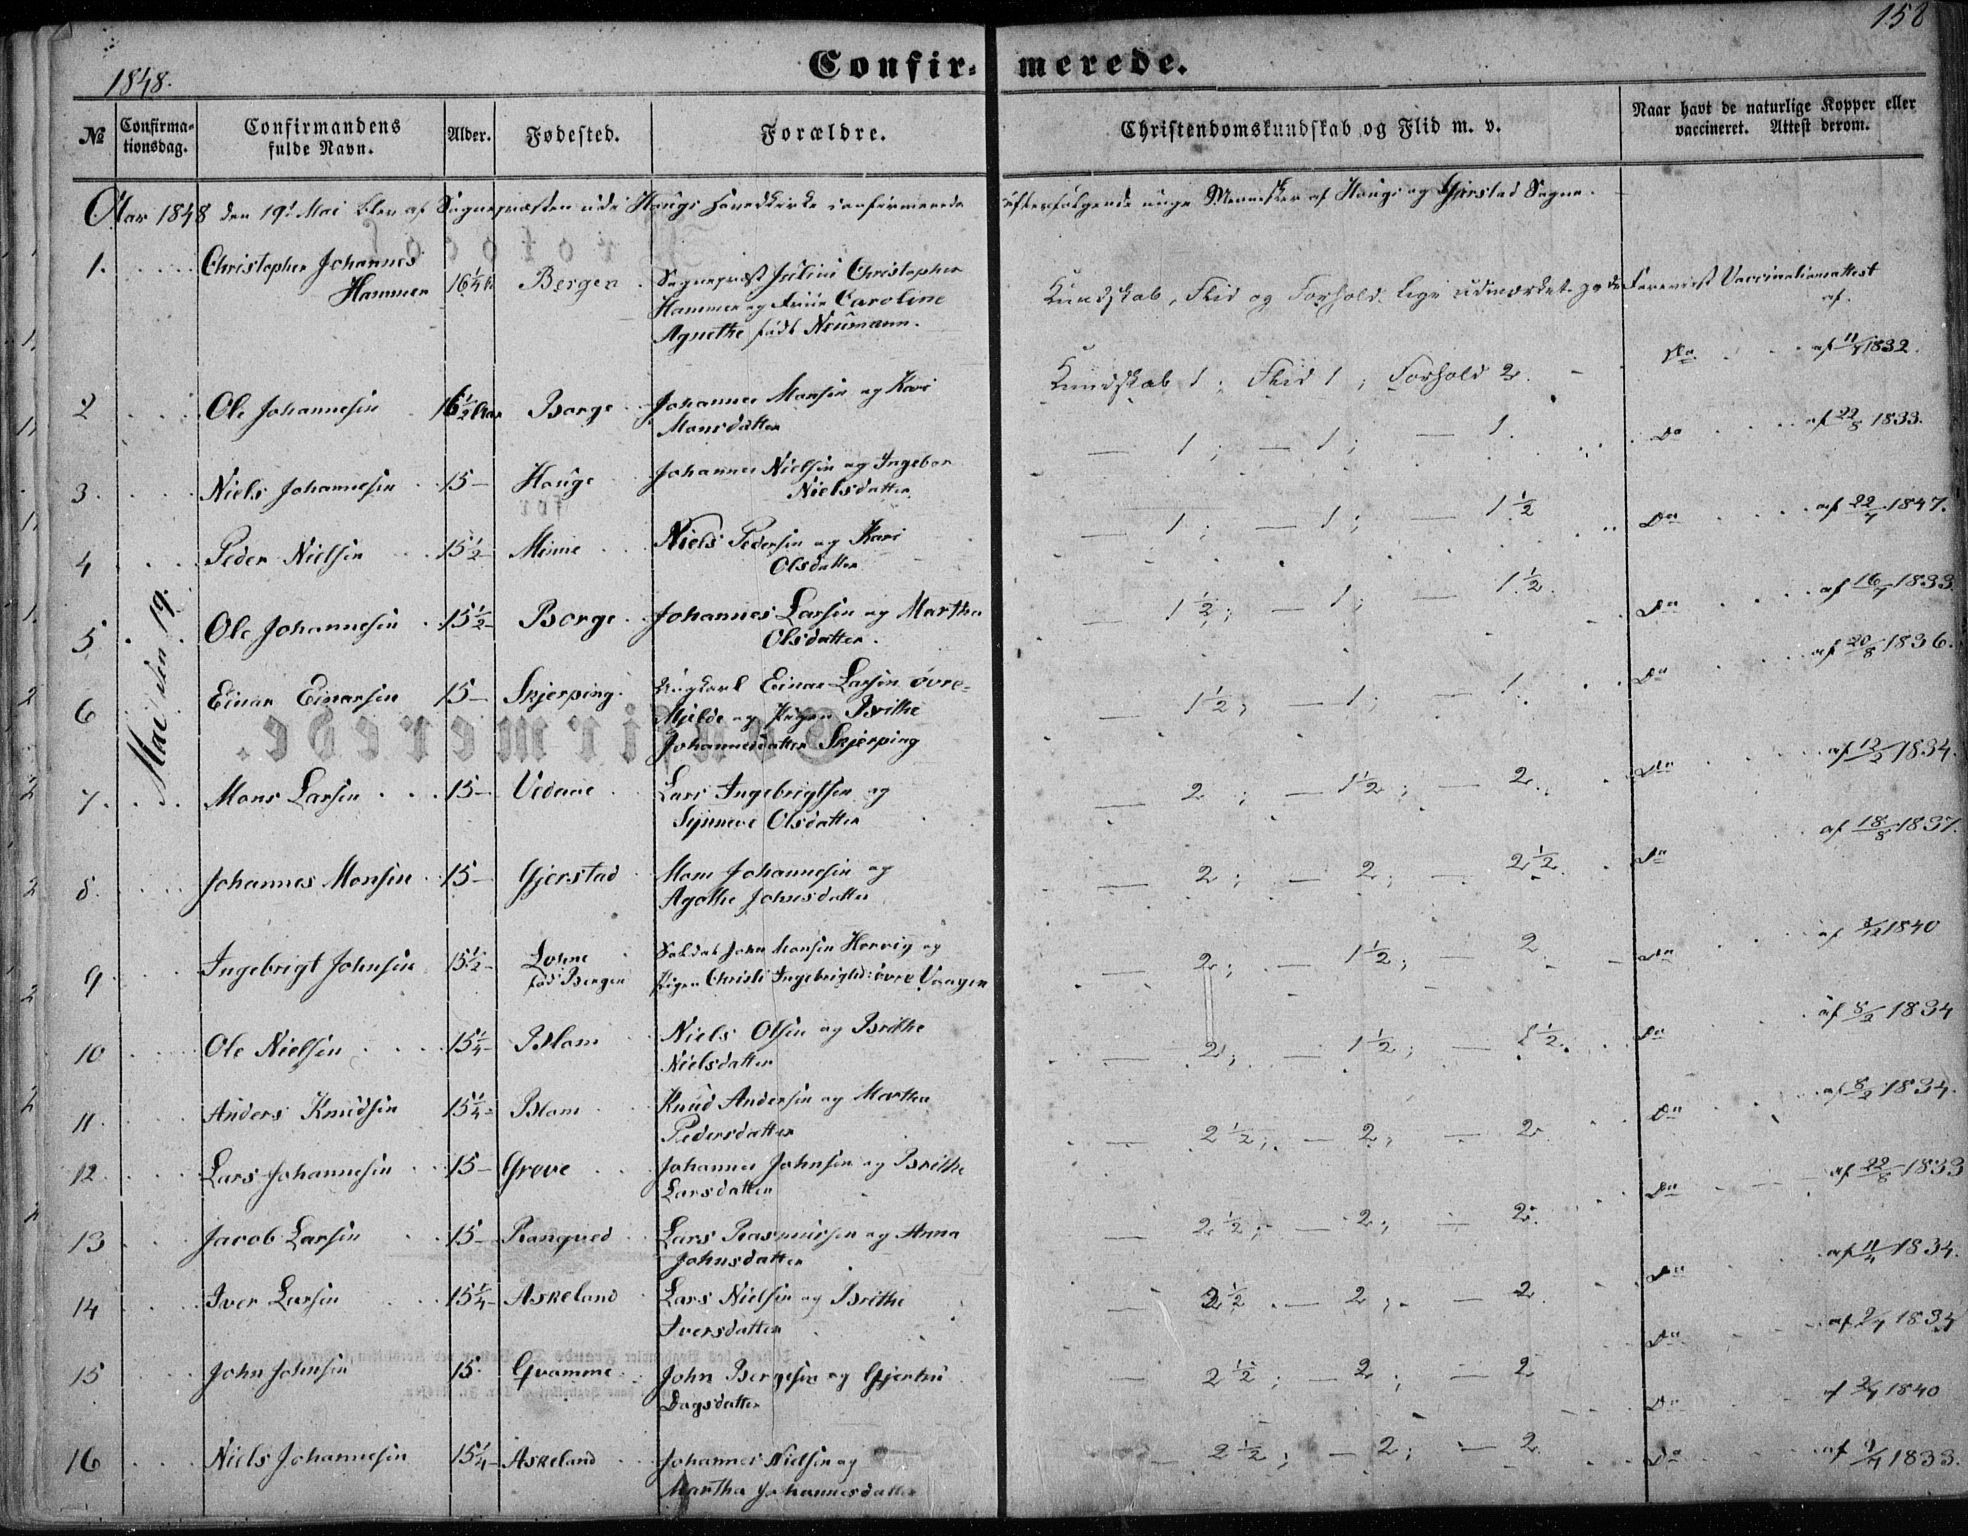 158
1848.
Confir- merede.
№ Confirma- tionsdag. Confirmandens fulde Navn. Alder. Fødested. Forældre. Christendomskundskab og Flid m. v. Naar havt de naturlige Kopper eller vaccineret. Attest derom.
Aar 1848 den 19de Mai blev af Sognepræsten udi Haugs Hovedkirke confirmerede efterfølgende unge Mennesker af Haugs og Gjerstad Sogne.
Mai den 19.
1. Christopher Johannes Hammer 16¼ Bergen Sognepræst Julius Christopher
Hammer og Frue Caroline
Agnethe født Neumann.
Kundskab, Flid og Forhold lige udmærket gode Foreviist Vaccinationsattest af
2 Ole Johannesen 16½ Aar Borge Johannes Monsen og Kari
Monsdatter
Kundskab 1; Flid 1; Forhold 2. Do af 11/7 1832.
3. Niels Johannesen 15 Hauge Johannes Nielsen og Ingebor
Nielsdatter
— 1; — 1; — 1. Do af 22/8 1833.
4 Peder Nielsen 15½ Minne Niels Pedersen og Kari
Olsdatter
— 1; — 1; — 1½ Do af 22/7 1847.
5 Ole Johannesen 15½ Borge Johannes Larsen og Martha
Olsdatter.
— 1½; — 1; — 1½. Do af 16/7 1833
6 Einar Einarsen 15 Skjerping Ungkarl Einar Larsen øvre-
Mjelde og Pigen Brithe
Johannesdatter Skjerping
— 1½; — 1; — 1. Do af 20/8 1836.
7. Mons Larsen 15 Vedaae Lars Ingebrigtsen og
Synneve Olsdatter
— 2; — 1½; — 2. Do af 12/2 1834.
8. Johannes Monsen 15 Gjerstad Mons Johannesen og
Agathe Johnsdatter
— 2; — 2; — 2½. Do af 18/8 1837.
9 Ingebrigt Johnsen 15½ Lonne
fød i Bergen Soldat John Monsen Hervig og
Pigen Christi Ingebrigtsd: øvre Vaagen
— 2; — 1½; — 2 Do af 1840
10 Ole Nielsen 15¼ Blom Niels Olsen og Brithe
Nielsdatter
— 2; — 1½; — 1½. Do af 8/2 1834
11. Anders Knudsen 15¼ Blom Knud Andersen og Martha
Pedersdatter
— 2½; — 2; — 2 Do af 8/2 1834.
12. Lars Johannesen 15 Greve Johannes Johnsen og Brithe
Larsdatter
— 2½; — 2; — 2. Do af 22/8 1833
13 Jacob Larsen 15 Ranqved Lars Rasmussen og Anna
Johnsdatter
— 2½ — 2; — 2 Do af 11/4 1834.
14 Iver Larsen 15¼ Askeland Lars Nielsen og Brithe
Iversdatter
— 2½; — 2; — 2 Do af 2/7 1834
15 John Johnsen 15 Qvamme John Bergesen og Gjertrü
Dagsdatter
— 2½; — 2; — 2 Do af 1840
16 Niels Johannesen 15¼ Askeland Johannes Nielsen og
Martha Johannesdatter
Do af 9/7 1833.